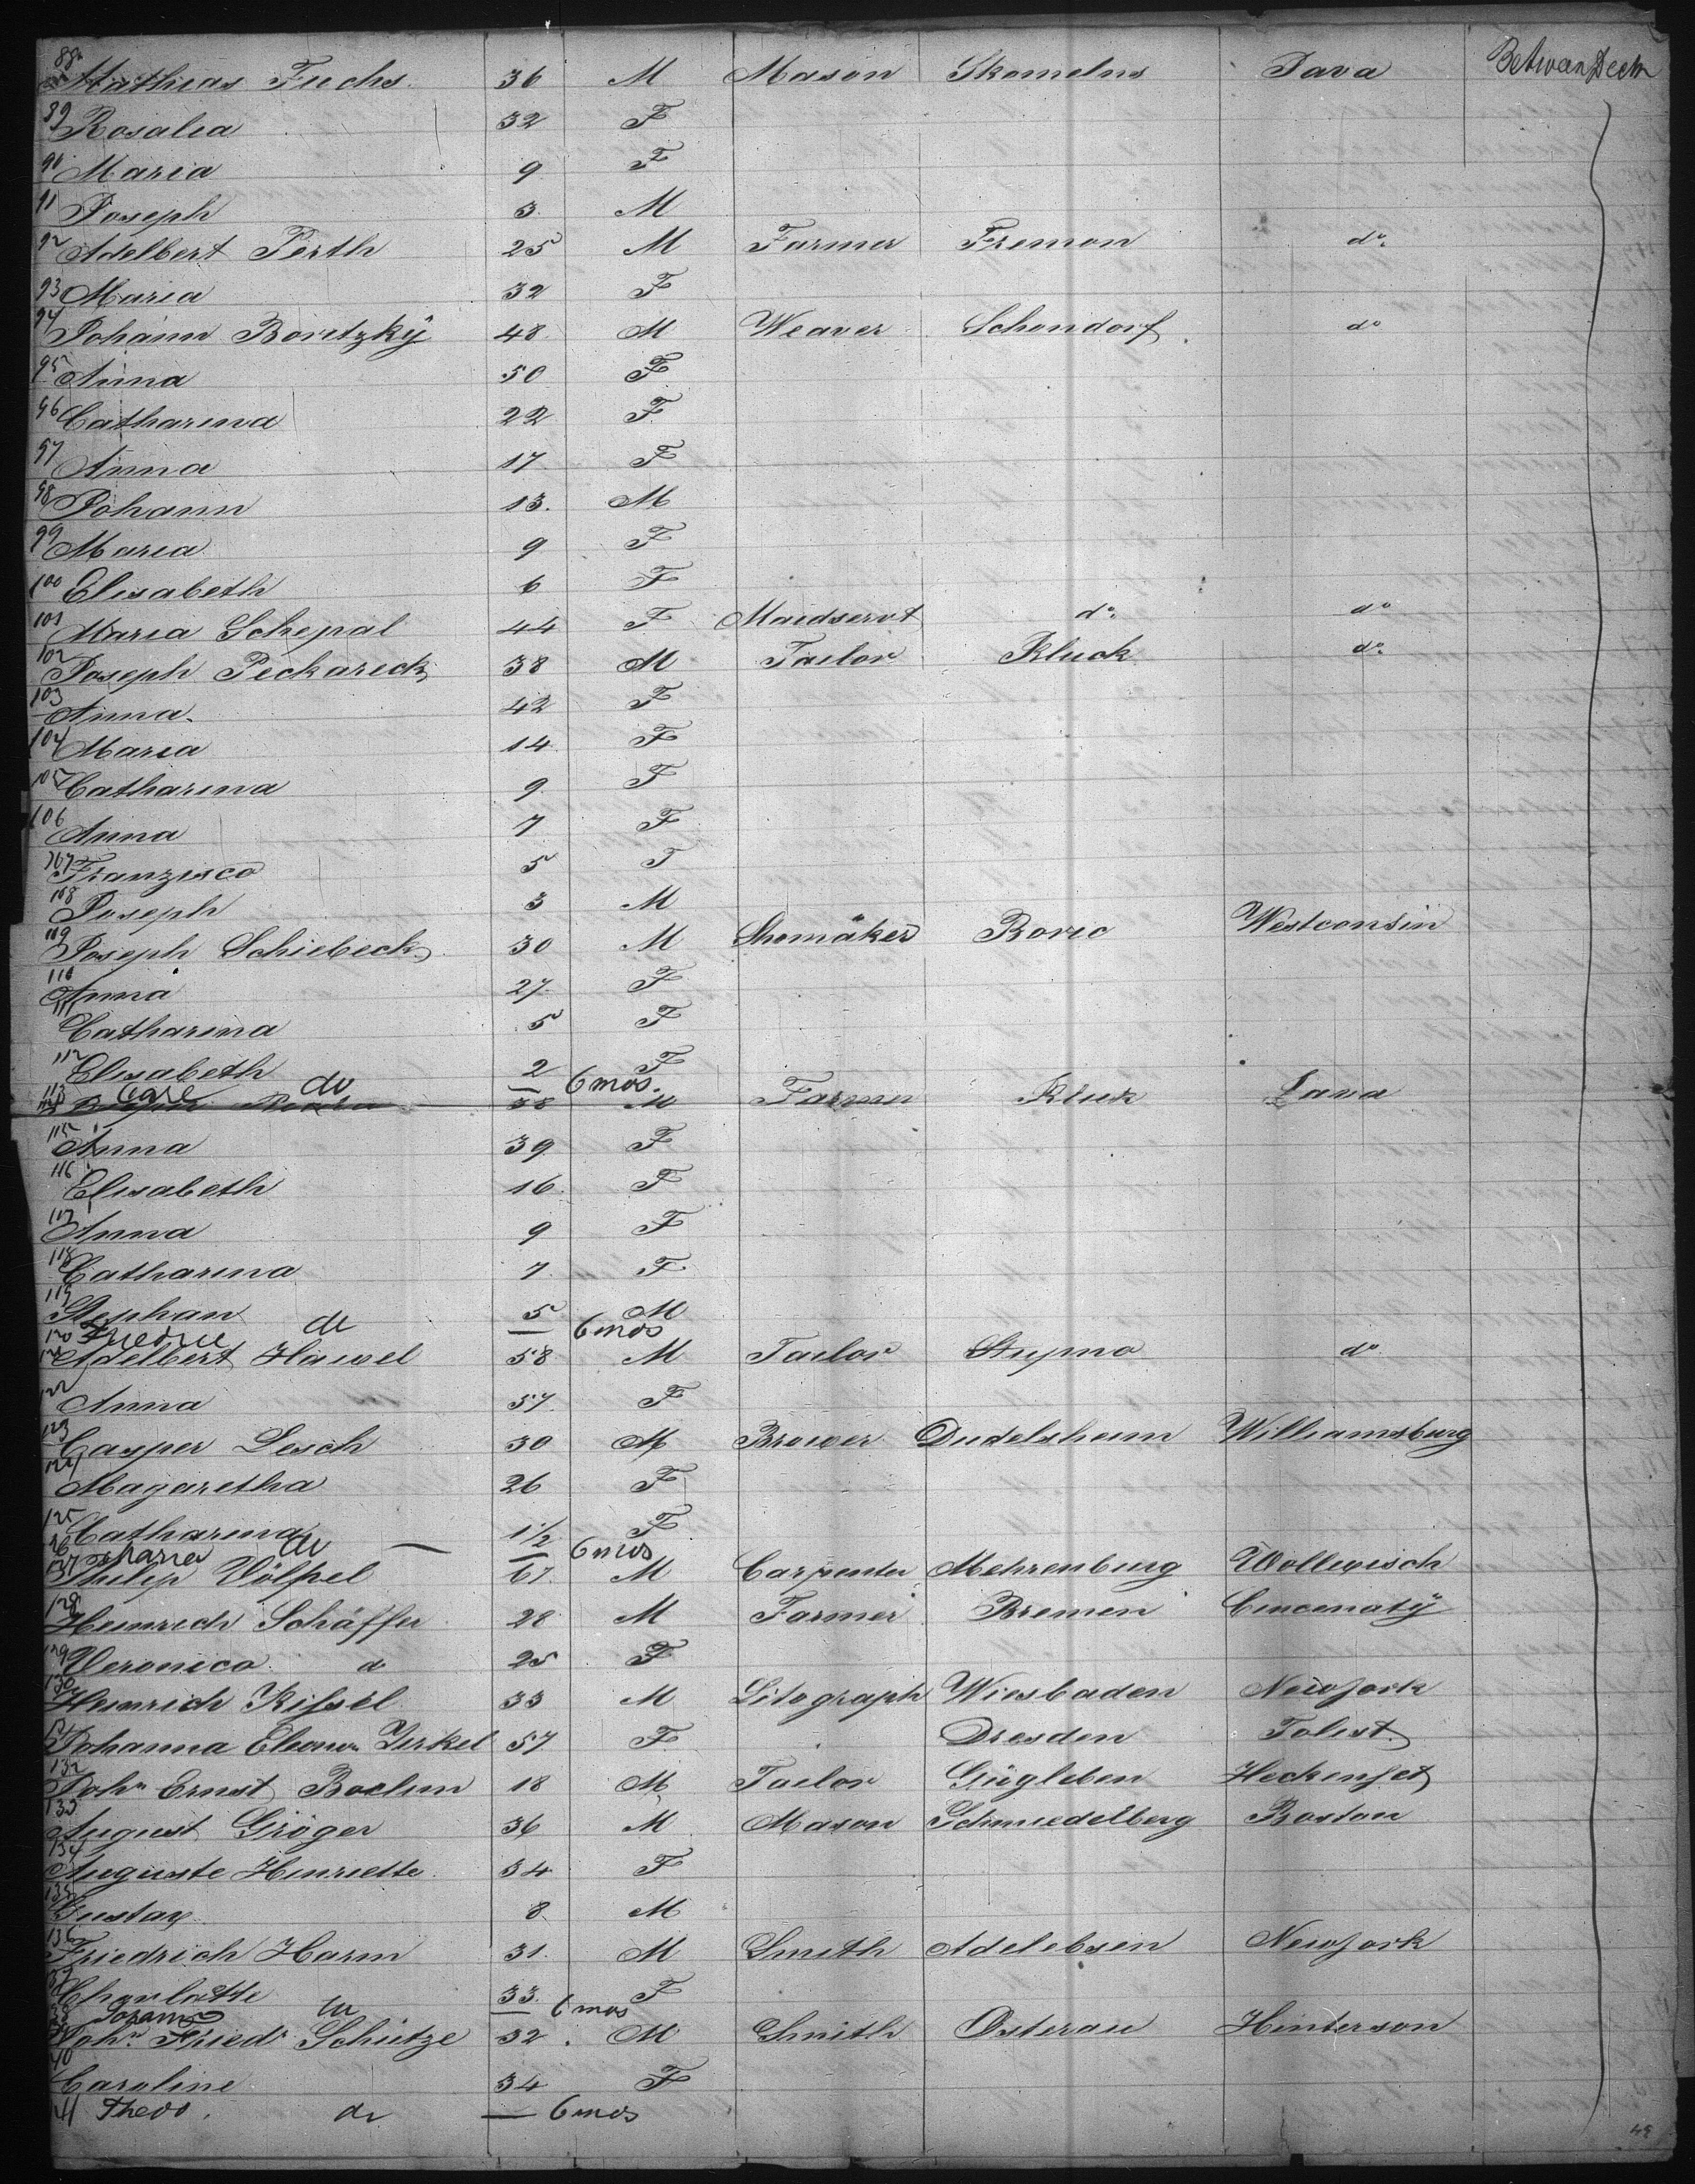 88 Mathias Fuchs. 36 M Mason Skomelns Java Betwean Deck
89 Rosalia 32 F
90 Maria 9 F
91 Joseph 3. M
92 Adelbert Perth 25 M Farmer Fremon do.
93 Maria 32 F
94 Johann Boritzkÿ 48 M Weaver Schondorf do
95 Anna 50 F
96 Catharina 22 F
97 Anna 17 F
98 Johann 13. M
99 Maria 9 F
100 Elisabeth 6 F
101 Maria Schepal 44 F Maidservt do. do
102 Joseph Peckareck 38 M Tailor Kluck do.
103 Anna. 42 F
104 Maria 14 F
105 Catharina 9 F
106 Anna 7 F
107 Franzisca 5 F
108 Joseph 3 M
109 Joseph Schiebeck 30 M Shomäker Boric Westconsin
110 Anna 27 F
111 Catharina 5 F
112 Elisabeth 2 F
113 do — 6 mos.
114 38 M Farmer Kluk Java
115 Anna 39 F
116 Elisabeth 16. F
117 Anna 9 F
118 Catharina 7. F
119 Stephan 5 M
120 do — 6 mos
121 Adelbert Hawel 58 M Tailor Stupno do
122 Anna 57. F
123 Casper Lesch 30 M Brower Dudelsheim Williamsburg
124 Magaretha 26 F
125 Catharina 1 1/2 F
126 Maria do — 6 mos
127 Philip Völpel 67. M Carpenter Mehrenburg Wollewisch
128 Heinrich Schäffer 28 M Farmer Bremen Cincenatÿ
129 Veronica do 25 F
130 Heinrich Kissel 33 M Litograph Wiesbaden Newjork
131 Johanna Eleonor Zirkel 57 F. Dresden Tolist
132 John Ernst Boelim 18 M Tailor Gügleben
133 August Gröger 36 M Mason Schmiedelberg Boston
134 Auguste Henriette 34 F
135 Gustav 8. M
136 Friedrich Harm 31. M Smith Adelebsen Newjork
137 Charlotte 33. F
138 do — 6 mos
John Fried Schütze 32. M Smith Osterau Hinterson
140 Caroline 34 F
141 Theod. do — 6 mos
49